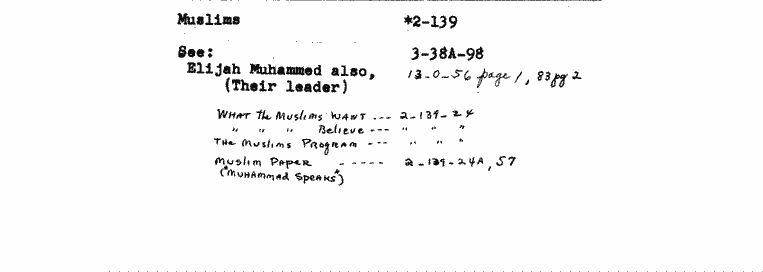 Muslims *2-139
See: 3-38A-98
Elijah Muhammed also, 13-0-56 page 1, 83pg 2
(Their leader)
WHAT the Muslims WANT --- 2-139-24
" " " Believe --- " " "
THE Muslims PROGRAM --- " " "
Muslim PAPER ----- 2-139-24A, 57
("MUHAMMAD SPEAKS")